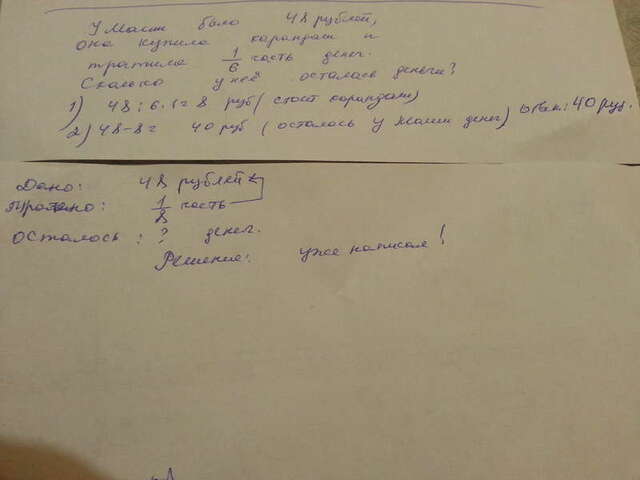 У Маши было 48 рублей,
она купила карандаш и
тратила 1/6 часть денег.
Сколько у неё осталась деньги?
1) 48 : 6 · 1 = 8 руб (стоит карандаш)
2) 48-8= 40 руб (осталось у Маши денег) Ответ: 40 руб.
Дано: 48 рублей
Трачено: 1/8 часть
Осталось : ? денег.
Решение: уже написал!